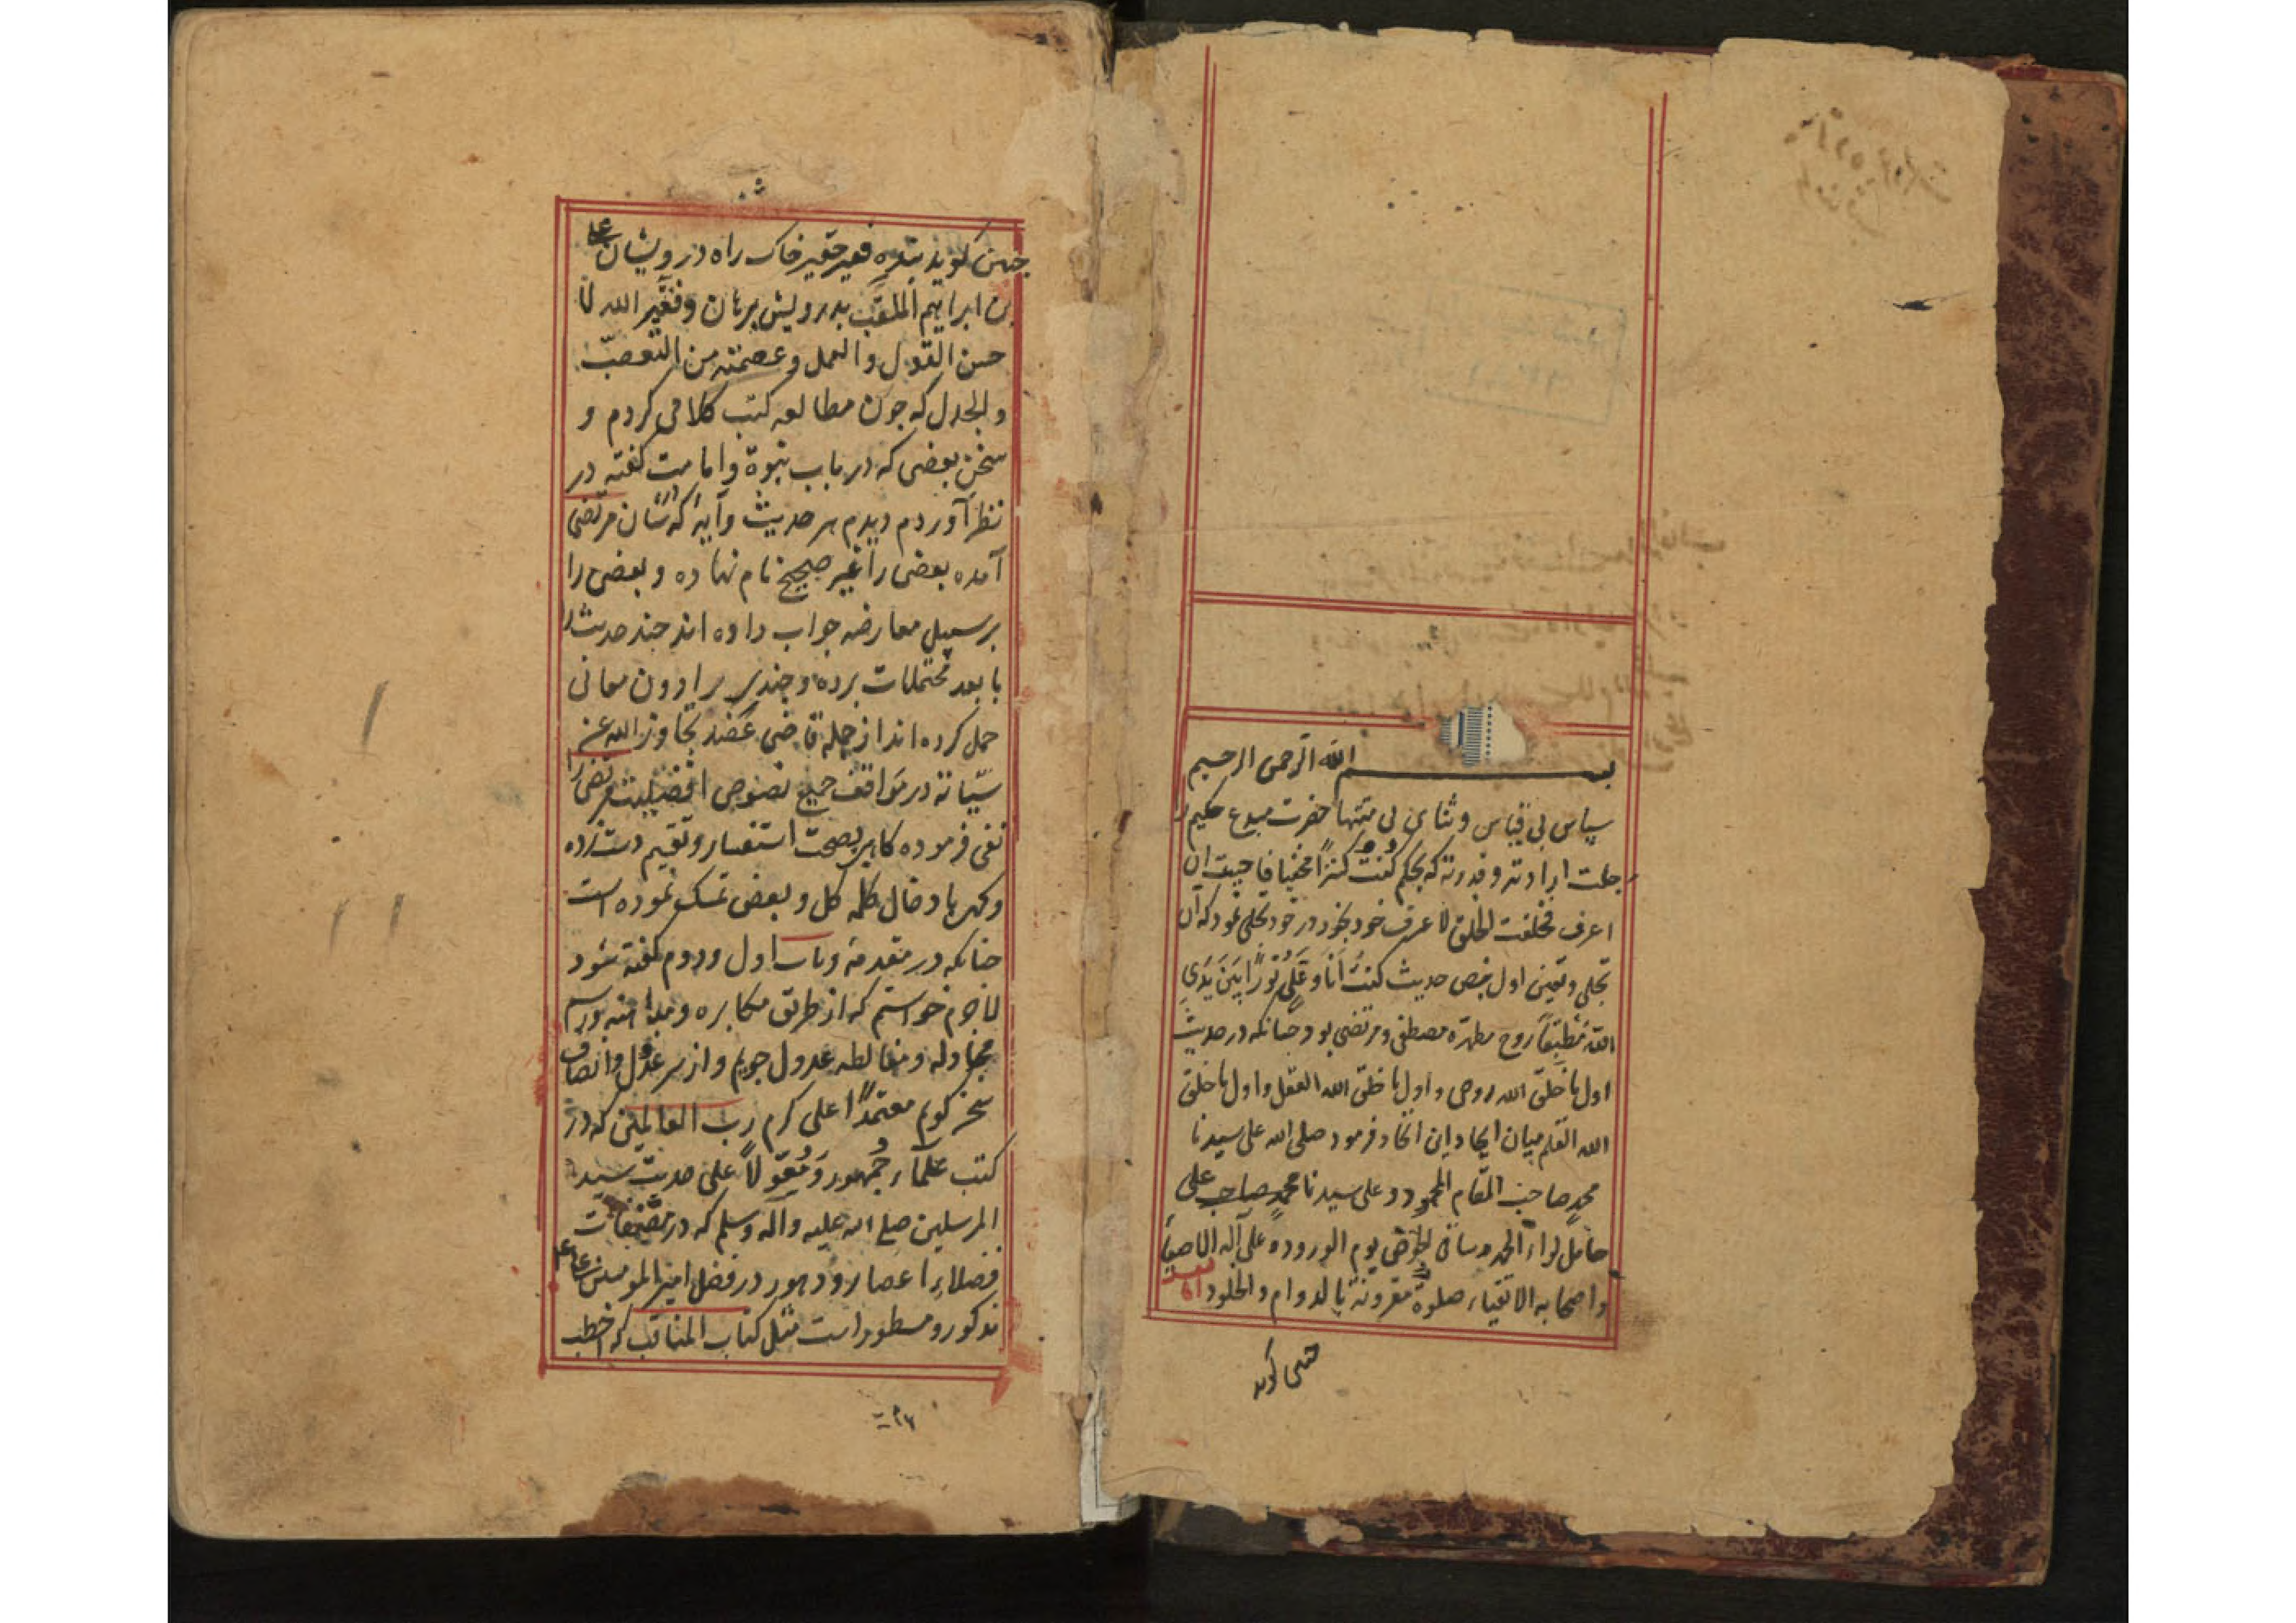 بسم الله الرحمن الرحیم
سپاس بی قیاس و ثنای بی منتها حضرت مبدع حکیم را
جلت ارادته و قدرته که بحکم کُنتُ کنزاً مخفیا فاحببت ان
اعرف فخلقت الخلق لاعرف خود بخود در خود تجلی نمود که آن
تجلی و تعین اول بنص حدیث کنتُ اَنَا وَ عَلیٌ نُوراً بَینَ یَدَیِ
الله مُطبَقاً روح مطهره مصطفی و مرتضی بود چنانکه در حدیث
اول ما خلق الله روحی و اول ما خلق الله العقل و اول ما خلق
الله القلم بیان ایجاد این اتحاد فرمود صلی الله علی سیدنا
محمدٍ صاحب المقام المحمود و علی سیدنا محمدٍ صاحب علی
حامل لواء الحمد و ساقی الحوض یوم الورود و علی آله الاصفیاء
و اصحابه الاتقیاء صلوة مقرونة بالدوام و الخلود اما بعد
چنین کوید
چنین کوید بنده فقیر حقیر خاک راه درویشان علی
بن ابراهیم الملقب بدرویش برهان وفقه الله لنا
حسن القول و العمل و عصمته من التعصب
و الجدل که چون مطالعه کتب کلامی کردم و
سخن بعضی که در باب نبوة و امامت کفته در
نظر آوردم دیدم هر حدیث و آیه که در شان مرتضی
آمده بعضی را غیر صحیح نام نهاده و بعضی را
بر سبیل معارضه جواب داده اند چند حدیث را
بابعد محتملات برده و چندی بر ادون معانی
حمل کرده اند از جمله قاضی عضد تجاوز الله عن
سیّیاته در مواقف جمیع نصوص افضیلیت مرتضی را
نفی فرموده کاهی بصحت استفسار و تقیم دست زده
و کهی بادخال کلمه کل و بعض تمسک نموده است
چنانکه در مقدمه و باب اول و دوم کفته شود
لاجرم خواستم که از طریق مکابره و مداهنه بورسم
مجادله و مغالطه عدول جویم و از سر عدل و انصاف
سخن کویم معتمداً علی کرم رب العالمین که در
کتب علمآء جُمهور وَ مُعَوّلاً علی حدیث سید
المرسلین صلی الله علیه و آله وسلم که در مصنفات
فضلاء اعصار و دهور در فضل امیر المومنین علی
مذکور و مسطور است مثل کتاب المناقب که اخطب